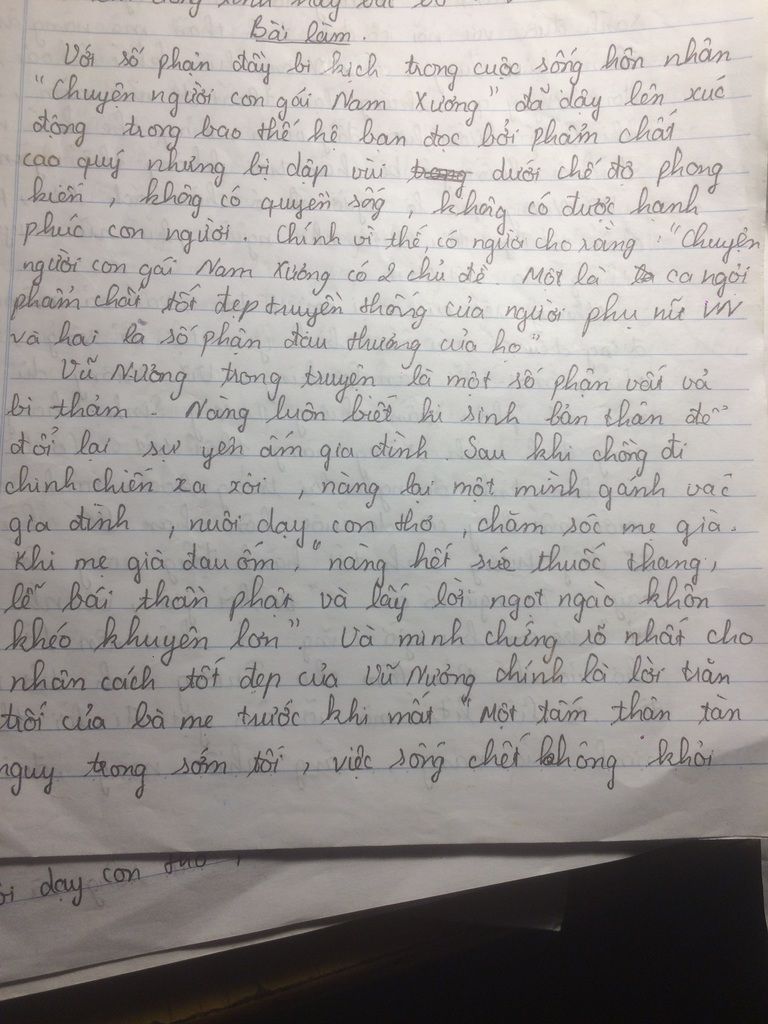 Bài làm.
Với số phận đầy bi kịch trong cuộc sống hôn nhân
"Chuyện người con gái Nam Xương" đã dậy lên xúc
động trong bao thế hệ bạn đọc bởi phẩm chất
cao quý nhưng bị dập vùi dưới chế độ phong
kiến, không có quyền sống, không có được hạnh
phúc con người. Chính vì thế, có người cho rằng: "Chuyện
người con gái Nam Xương có 2 chủ đề. Một là ca ngợi
phẩm chất tốt đẹp truyền thống của người phụ nữ VN
và hai là số phận đau thương của họ"
Vũ Nương trong truyện là một số phận vất vả
bi thảm. Nàng luôn biết hi sinh bản thân để
đổi lại sự yên ấm gia đình. Sau khi chồng đi
chinh chiến xa xôi, nàng lại một mình gánh vác
gia đình, nuôi dạy con thơ, chăm sóc mẹ già.
Khi mẹ già đau ốm, "nàng hết sức thuốc thang,
lễ bái thần phật và lấy lời ngọt ngào khôn
khéo khuyên lơn". Và minh chứng rõ nhất cho
nhân cách tốt đẹp của Vũ Nương chính là lời trăn
trối của bà mẹ trước khi mất "Một tấm thân tàn
nguy trong sớm tối, việc sống chết không khỏi
dạy con thơ,